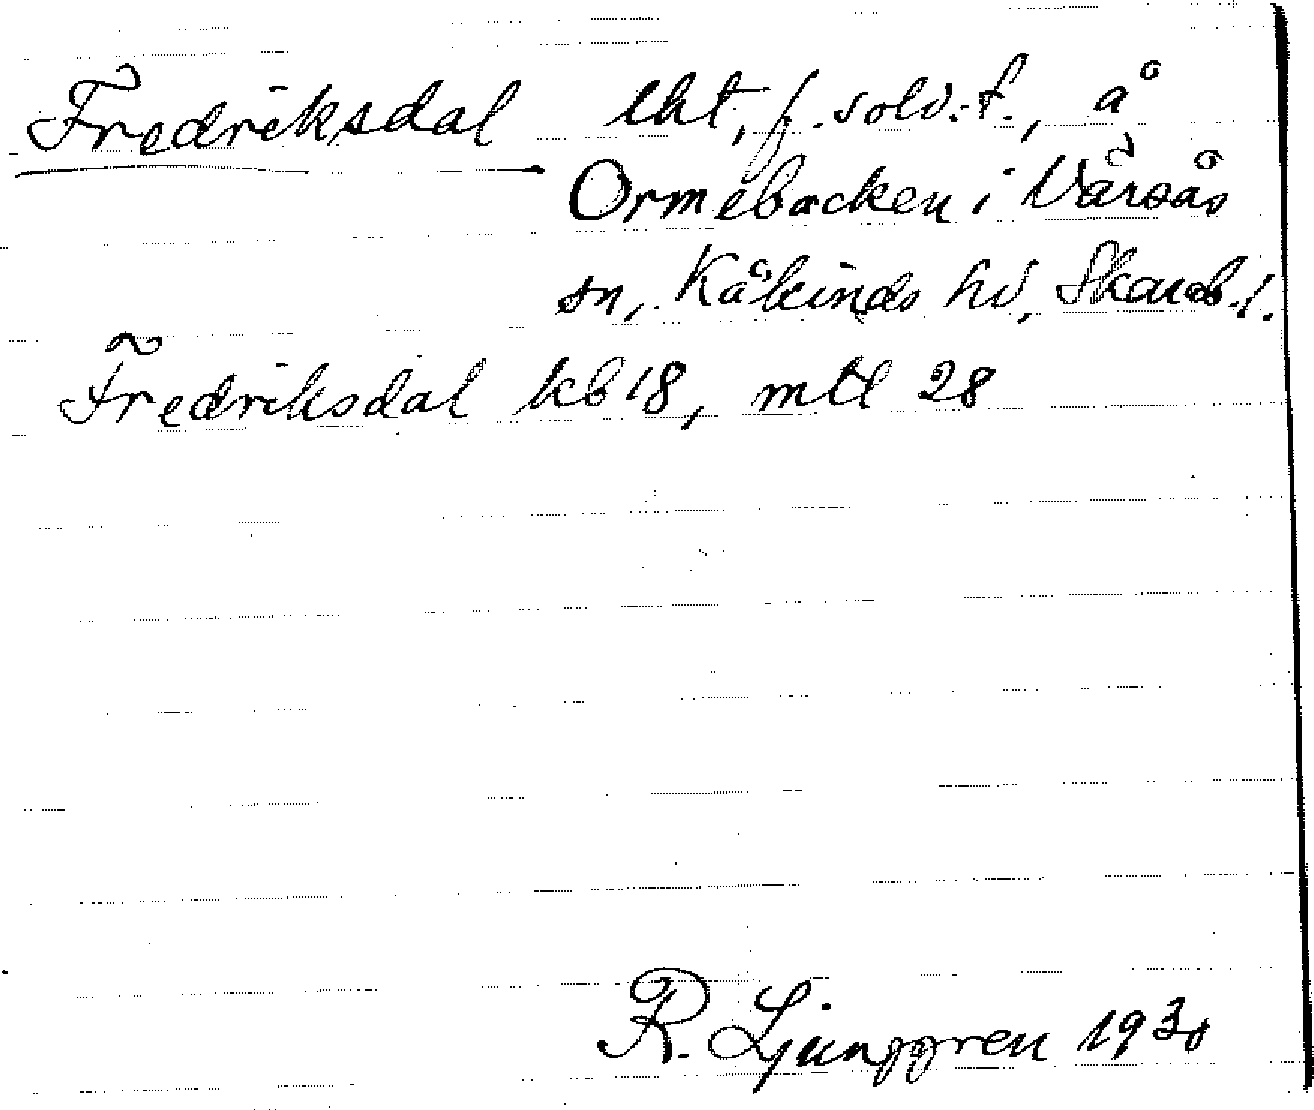 Fredriksdal lht, f. sold.t., å
Ormebacken i Vårsås
sn, Kåkinds hd, Skarab.l.
Fredriksdal kb 18, mtl 28
R. Ljunggren 1930